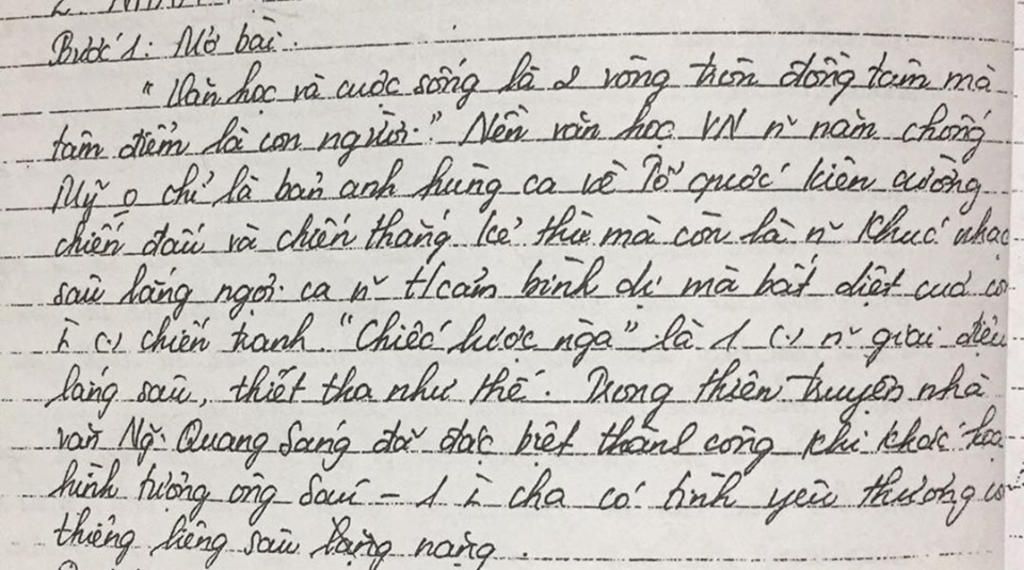 Bước 1: Mở bài.
"Văn học và cuộc sống là 2 vòng tròn đồng tâm mà
tâm điểm là con người." Nền văn học VN n~ năm chống
Mỹ o chỉ là bản anh hùng ca về Tổ quốc kiên cường
chiến đấu và chiến thắng kẻ thù mà còn là n~ khúc nhạc
sâu lắng ngợi ca n~ t/cảm bình dị mà bất diệt của co
(.) chiến tranh. "Chiếc lược ngà" là 1 (.) n~ giai điệu
lắng sâu, thiết tha như thế. Trong thiên truyện nhà
văn Ng. Quang Sáng đã đặc biệt thành công khi khắc họa
hình tượng ông Sáu - 1 cha có tình yêu thương
thiêng liêng sâu nặng.